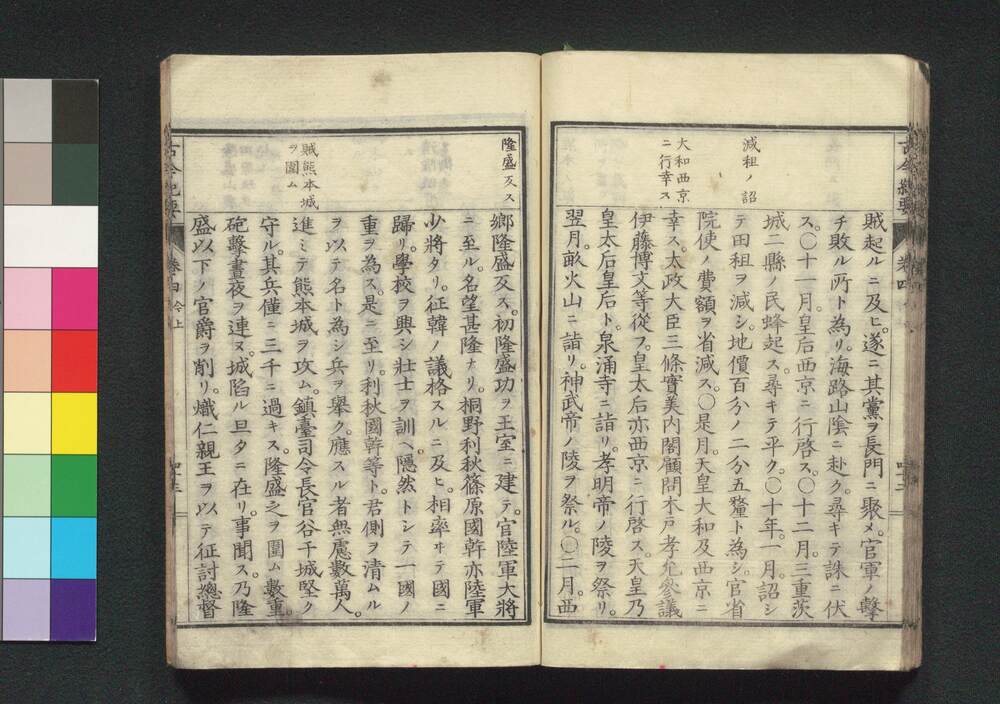 減租ノ詔
大和西京
ニ行幸ス
賊起ルニ及ヒ。遂ニ其黨ヲ長門ニ聚メ。官軍ノ擊
チ敗ル所ト為リ。海路山陰ニ赴ク。尋キテ誅ニ伏
ス。〇十一月。皇后西京ニ行啓ス。〇十二月。三重茨
城二縣ノ民蜂起ス。尋キテ平ク。〇十年。一月。詔シ
テ田租ヲ減シ。地價百分ノ二分五釐ト為シ。官省
院使ノ費額ヲ省減ス。〇是月。天皇大和及西京ニ
幸ス。太政大臣三條實美内閣顧問木戸孝允參議
伊藤博文等從フ。皇太后亦西京ニ行啓ス。天皇乃
皇太后皇后ト。泉涌寺ニ詣リ。孝明帝ノ陵ヲ祭リ。
翌月。畝火山ニ詣リ。神武帝ノ陵ヲ祭ル。〇二月。西
古今紀要
卷四
今上
四十三
隆盛反ス
賊熊本城
ヲ圍ム
鄉隆盛反ス。初隆盛功ヲ王室ニ建テ。官陸軍大將
ニ至ル。名望甚隆ナリ。桐野利秋篠原國幹亦陸軍
少將タリ。征韓ノ議格スルニ及ヒ。相率ヰテ國ニ
歸リ。學校ヲ興シ壯士ヲ訓ヘ。隱然トシテ一國ノ
重ヲ為ス。是ニ至リ。利秋國幹等ト。君側ヲ清ムル
ヲ以テ名ト為シ兵ヲ舉ク。應スル者無慮數萬人。
進ミテ熊本城ヲ攻ム。鎮臺司令長官谷干城堅ク
守ル。其兵僅ニ三千ニ過キス。隆盛之ヲ圍ム數重。
砲擊晝夜ヲ連ヌ。城陷ル旦タニ在リ。事聞ス。乃隆
盛以下ノ官爵ヲ削リ。熾仁親王ヲ以テ征討總督